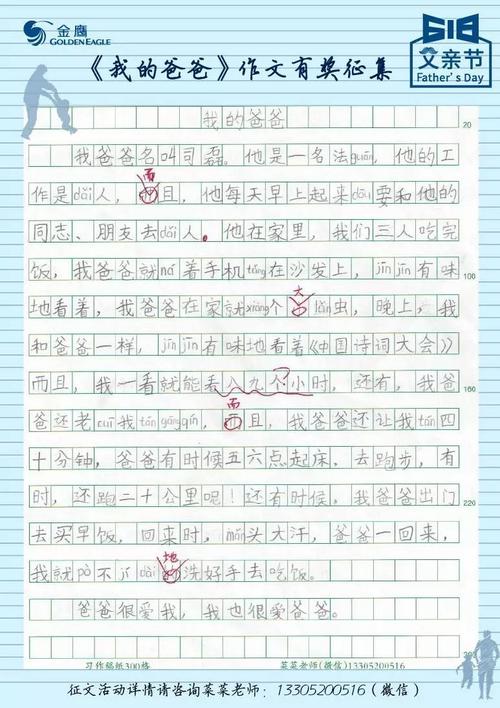 金鹰
GOLDEN EAGLE
618
父亲节
Father's Day
《我的爸爸》作文有奖征集
我的爸爸
20
我爸爸名叫司磊。他是一名法guān,他的工
而
作是dǎi人,且,他每天早上起来dōu要和他的
同志、朋友去dǎi人。他在家里,我们三人吃完
饭,我爸爸就ná着手机tǎng在沙发上,jīn jīn有味
100
大
地看着,我爸爸在家就xiàng个lǎn虫,晚上,我
和爸爸一样,jīn jīn有味地看着《中国诗词大会》
而且,我一看就能看八九个小时,还有,我爸
160
?
而
爸还老cuī我tán gāng qín,且,我爸爸还让我tán四
十分钟,爸爸有时候五六点起床。去跑步,有
时,还跑二十公里呢!还有时候,我爸爸出门
220
去买早饭,回来时,mǎn头大汗,爸爸一回来,
地
我就pò不jí dài洗好手去吃饭。
爸爸很爱我,我也很爱爸爸。
300
习作稿纸300格
菜菜老师(微信)13305200516
征文活动详情请咨询菜菜老师:13305200516(微信)